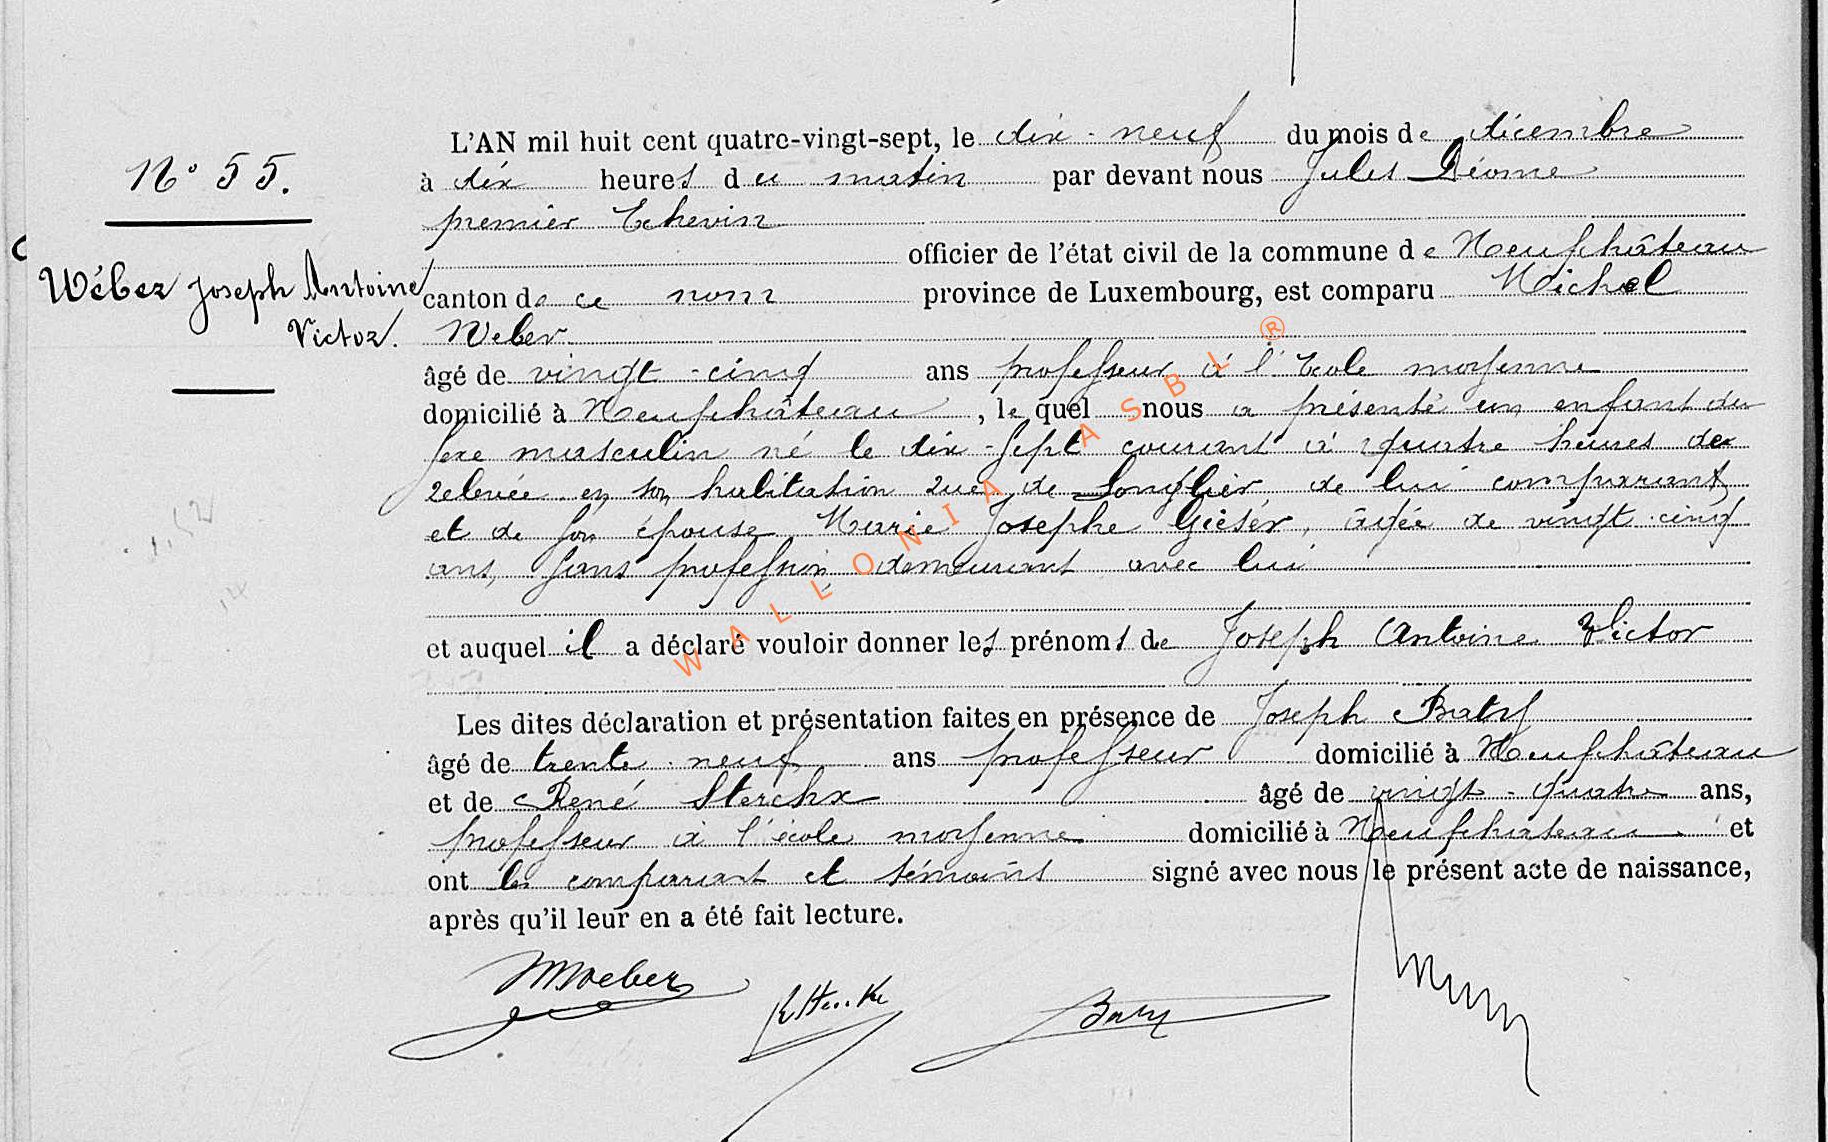 N° 55.
Wéber Joseph Antoine
Victor.
L'AN mil huit cent quatre-vingt-sept, le dix-neuf du mois de décembre
à dix heures du matin par devant nous Jules
premier Echevin
officier de l'état civil de la commune de Neufchâteau
canton de ce nom province de Luxembourg, est comparu Michel
Weber
âgé de vingt-cinq ans professeur à l'Ecole moyenne
domicilié à Neufchâteau, lequel nous a présenté un enfant du
sexe masculin né le dix-sept courant à quatre heures de
relevée en son habitation rue de Longlier, de lui comparant
et de son épouse Marie Josephe Giesér, âgée de vingt-cinq
ans, sans profession demeurant avec lui
et auquel il a déclaré vouloir donner les prénoms de Joseph Antoine Victor
Les dites déclaration et présentation faites en présence de Joseph Baty
âgé de trente-neuf ans professeur domicilié à Neufchâteau
et de René Sterckx âgé de vingt-quatre ans,
professeur à l'école moyenne domicilié à Neufchateau et
ont les comparant et témoins signé avec nous le présent acte de naissance,
après qu'il leur en a été fait lecture.
MWeber
Baty
WALLONIA ASBL ®